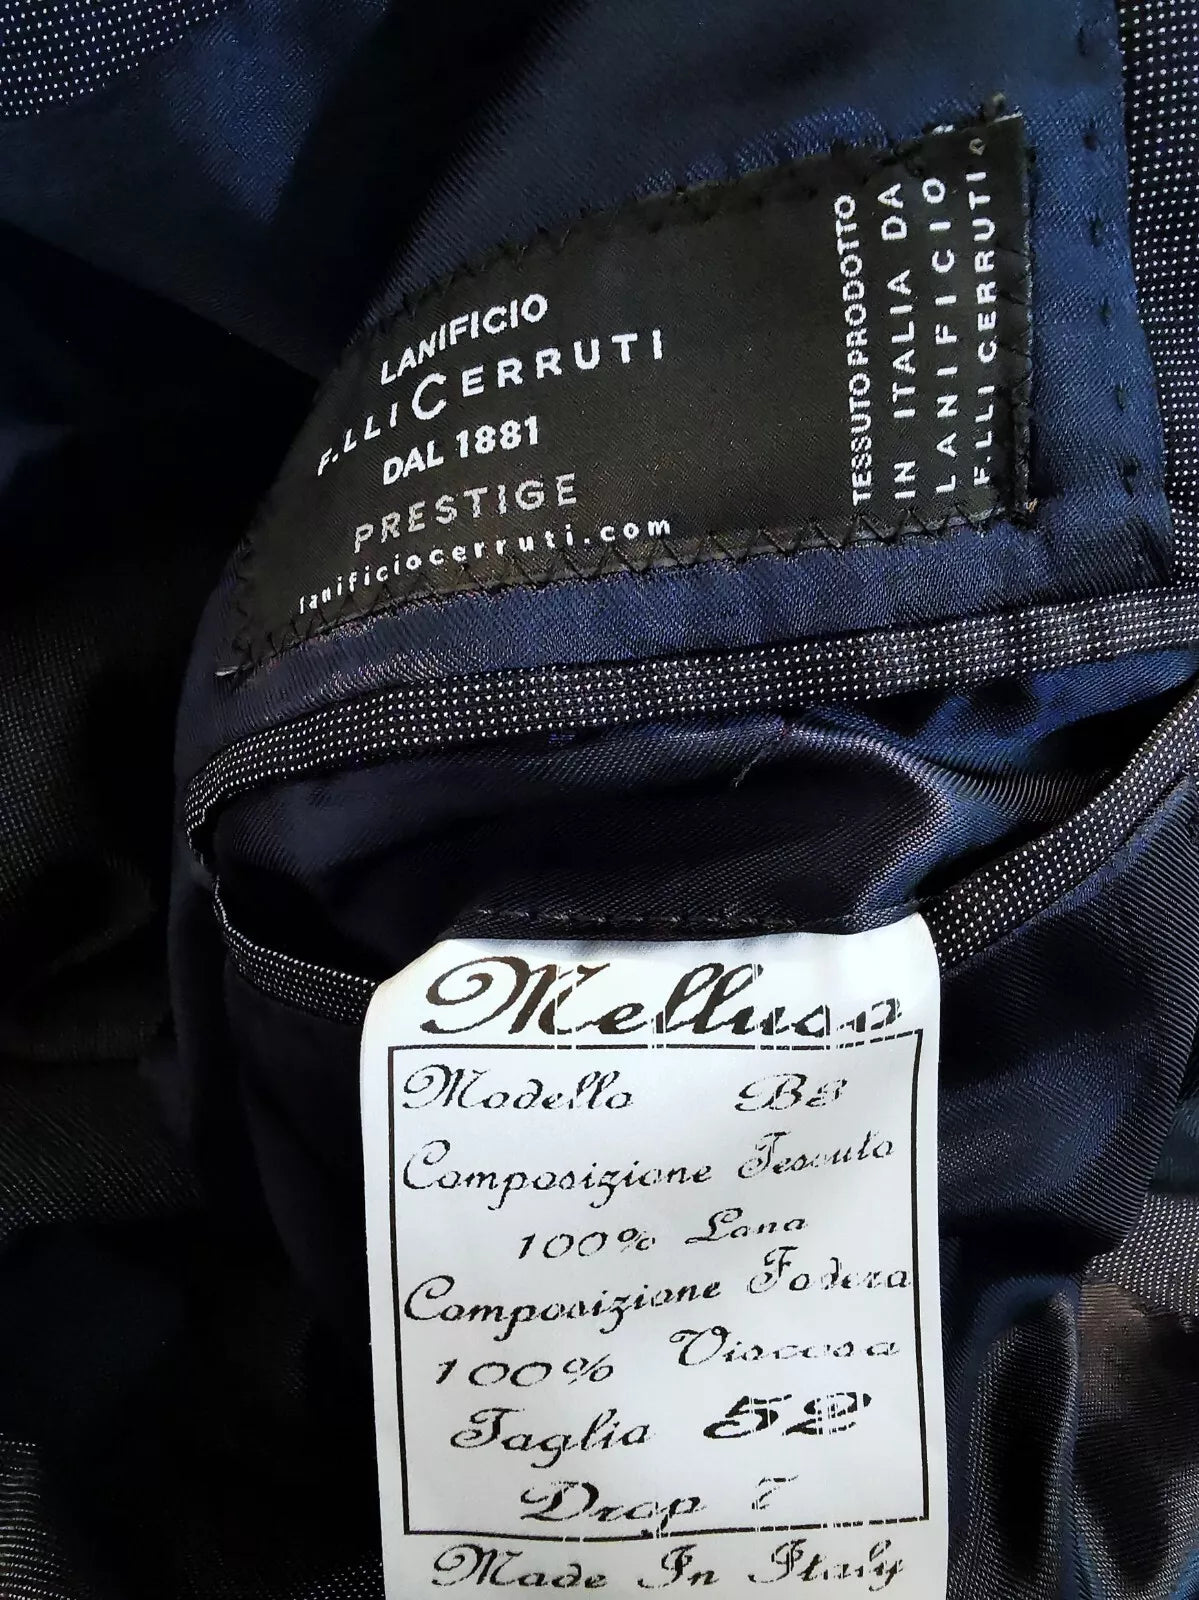 LANIFICIO
F.LLI CERRUTI
DAL 1881
PRESTIGE
lanificiocerruti.com
TESSUTO PRODOTTO
IN ITALIA DA
LANIFICIO
F.LLI CERRUTI
Melluso
Modello B8
Composizione Tessuto
100% Lana
Composizione Fodera
100% Viscosa
Taglia 52
Drop 7
Made In Italy